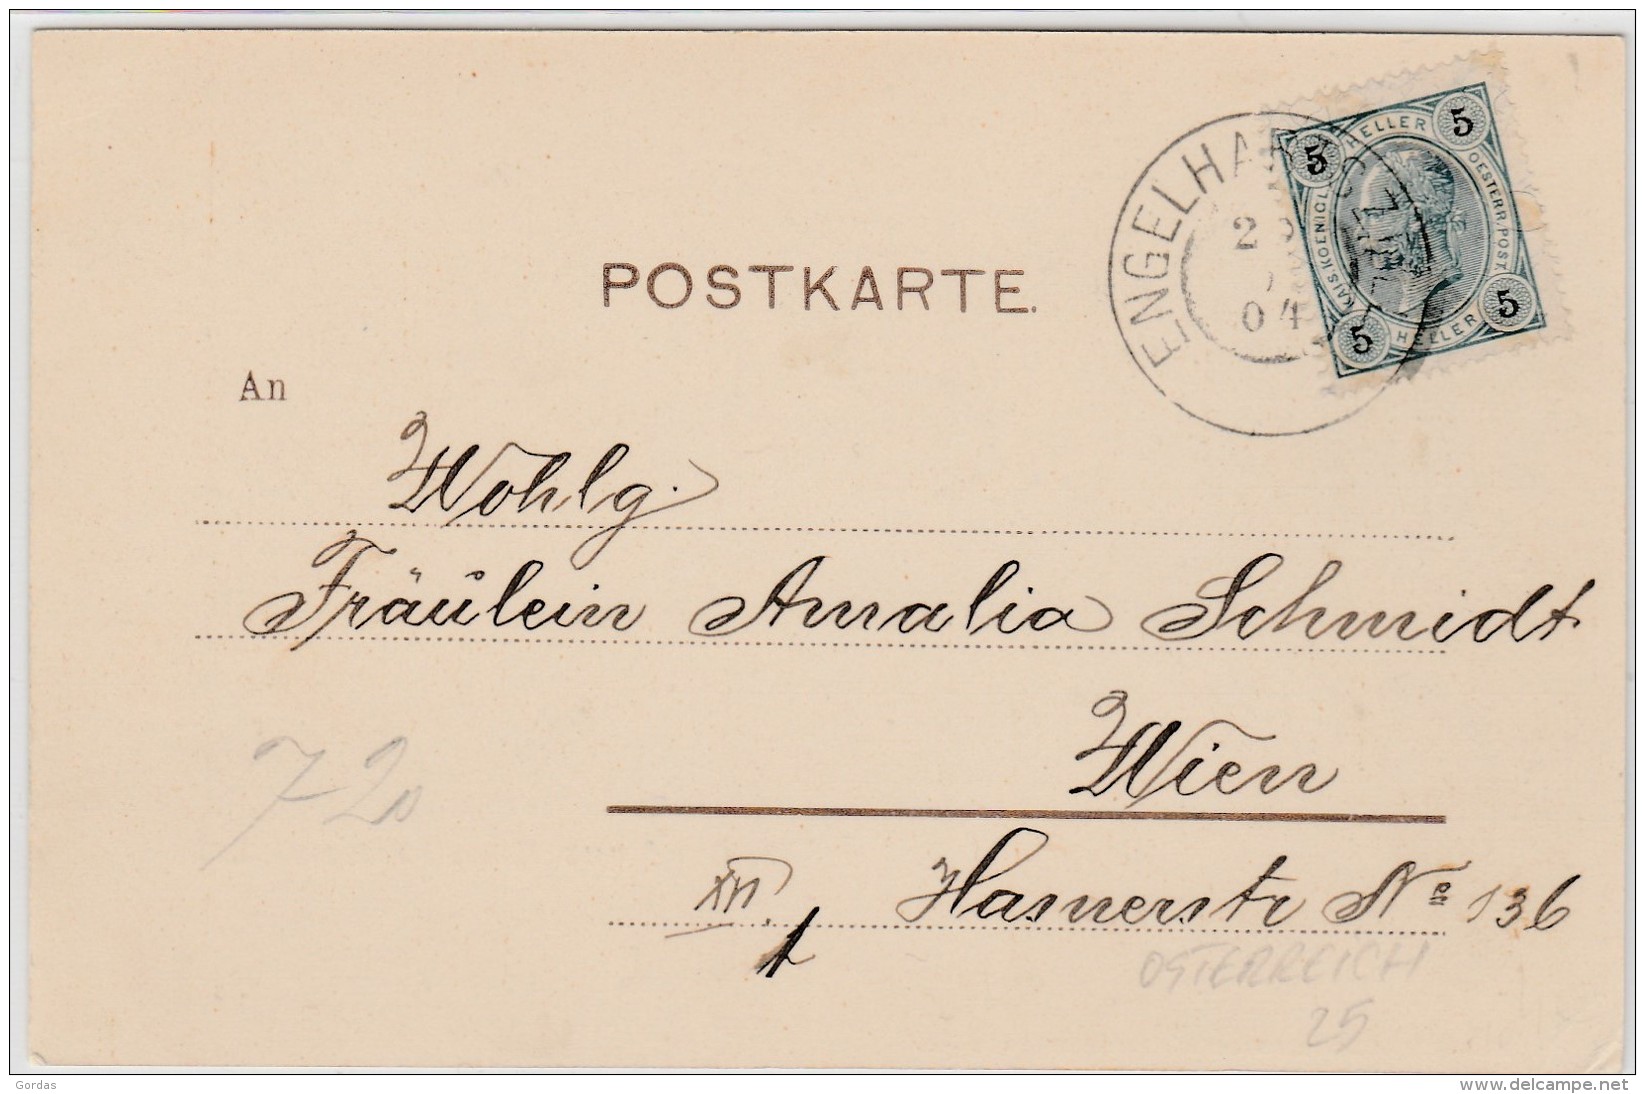 5 HELLER 5
KAIS. KOENIGL. OESTERR. POST.
5 HELLER 5
ENGELHAR
2
04
POSTKARTE.
An
Wohlg.
Fräulein Amalia Schmidt
Wien
XVI. Hasnerstr No 136
720
OSTERREICH
25
Gordas
www.delcampe.net